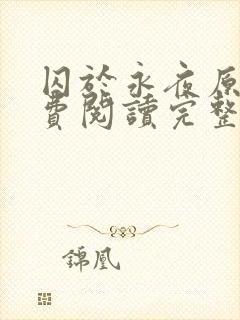 囚於永夜原
費閱讀完整
錦凰